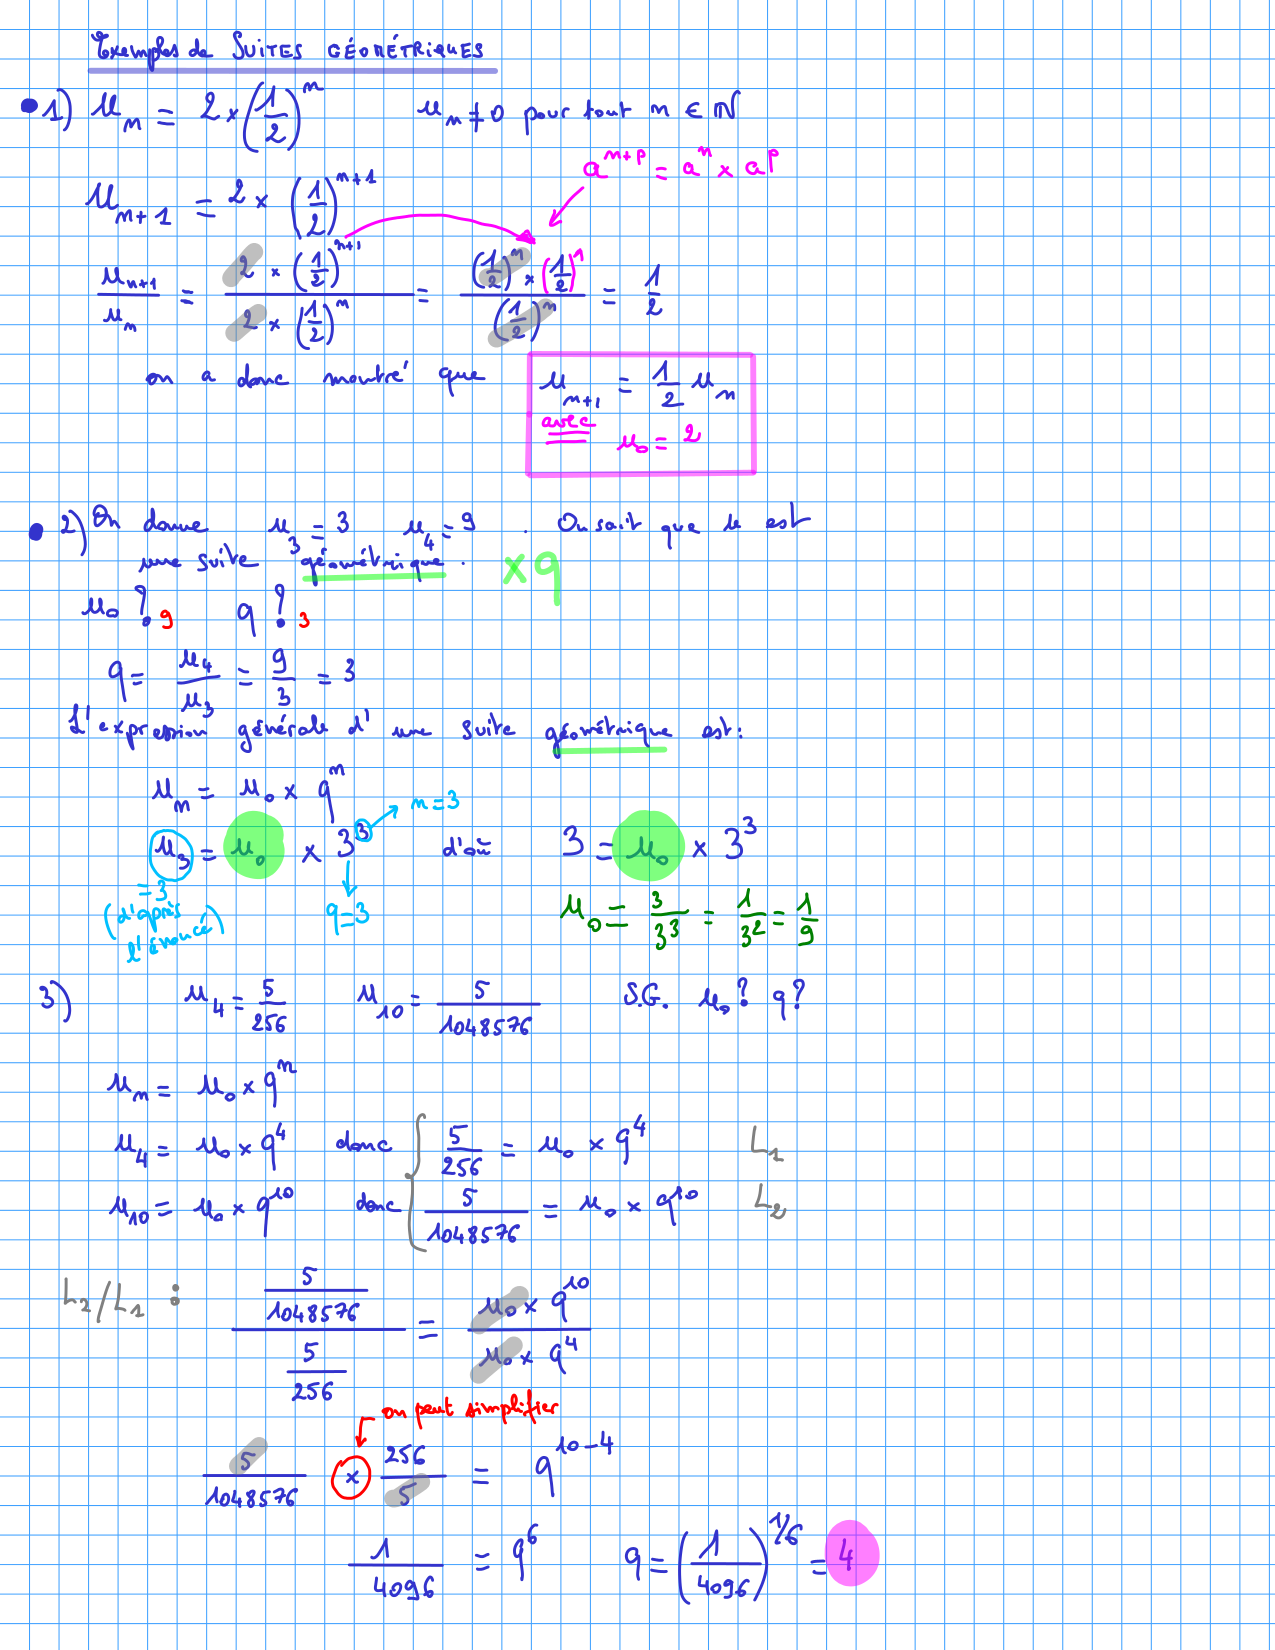 Exemples de SUITES GÉOMÉTRIQUES
• 1) u_n = 2 × (1/2)^n   u_n ≠ 0 pour tout n ∈ ℕ
a^(n+p) = a^n × a^p
u_(n+1) = 2 × (1/2)^(n+1)
u_(n+1)/u_n = (2 × (1/2)^(n+1))/(2 × (1/2)^n) = ((1/2)^n × (1/2)^1)/((1/2)^n) = 1/2
on a donc montré que   u_(n+1) = 1/2 u_n
avec u_0 = 2
• 2) On donne u_3 = 3   u_4 = 9 . On sait que u est
une suite géométrique.   ×q
u_0 ? 9   q ? 3
q = u_4/u_3 = 9/3 = 3
L'expression générale d'une suite géométrique est :
u_n = u_0 × q^n
n=3
u_3 = u_0 × 3^3   d'où   3 = u_0 × 3^3
=3
(d'après l'énoncé)   q=3   u_0 = 3/3^3 = 1/3^2 = 1/9
3)   u_4 = 5/256   u_10 = 5/1048576   S.G. u_0 ? q ?
u_n = u_0 × q^n
u_4 = u_0 × q^4   donc   { 5/256 = u_0 × q^4   L_1
u_10 = u_0 × q^10   donc   { 5/1048576 = u_0 × q^10   L_2
L_2/L_1 :   (5/1048576)/(5/256) = (u_0 × q^10)/(u_0 × q^4)
on peut simplifier
5/1048576 × 256/5 = q^(10-4)
1/4096 = q^6   q = (1/4096)^(1/6) = 4